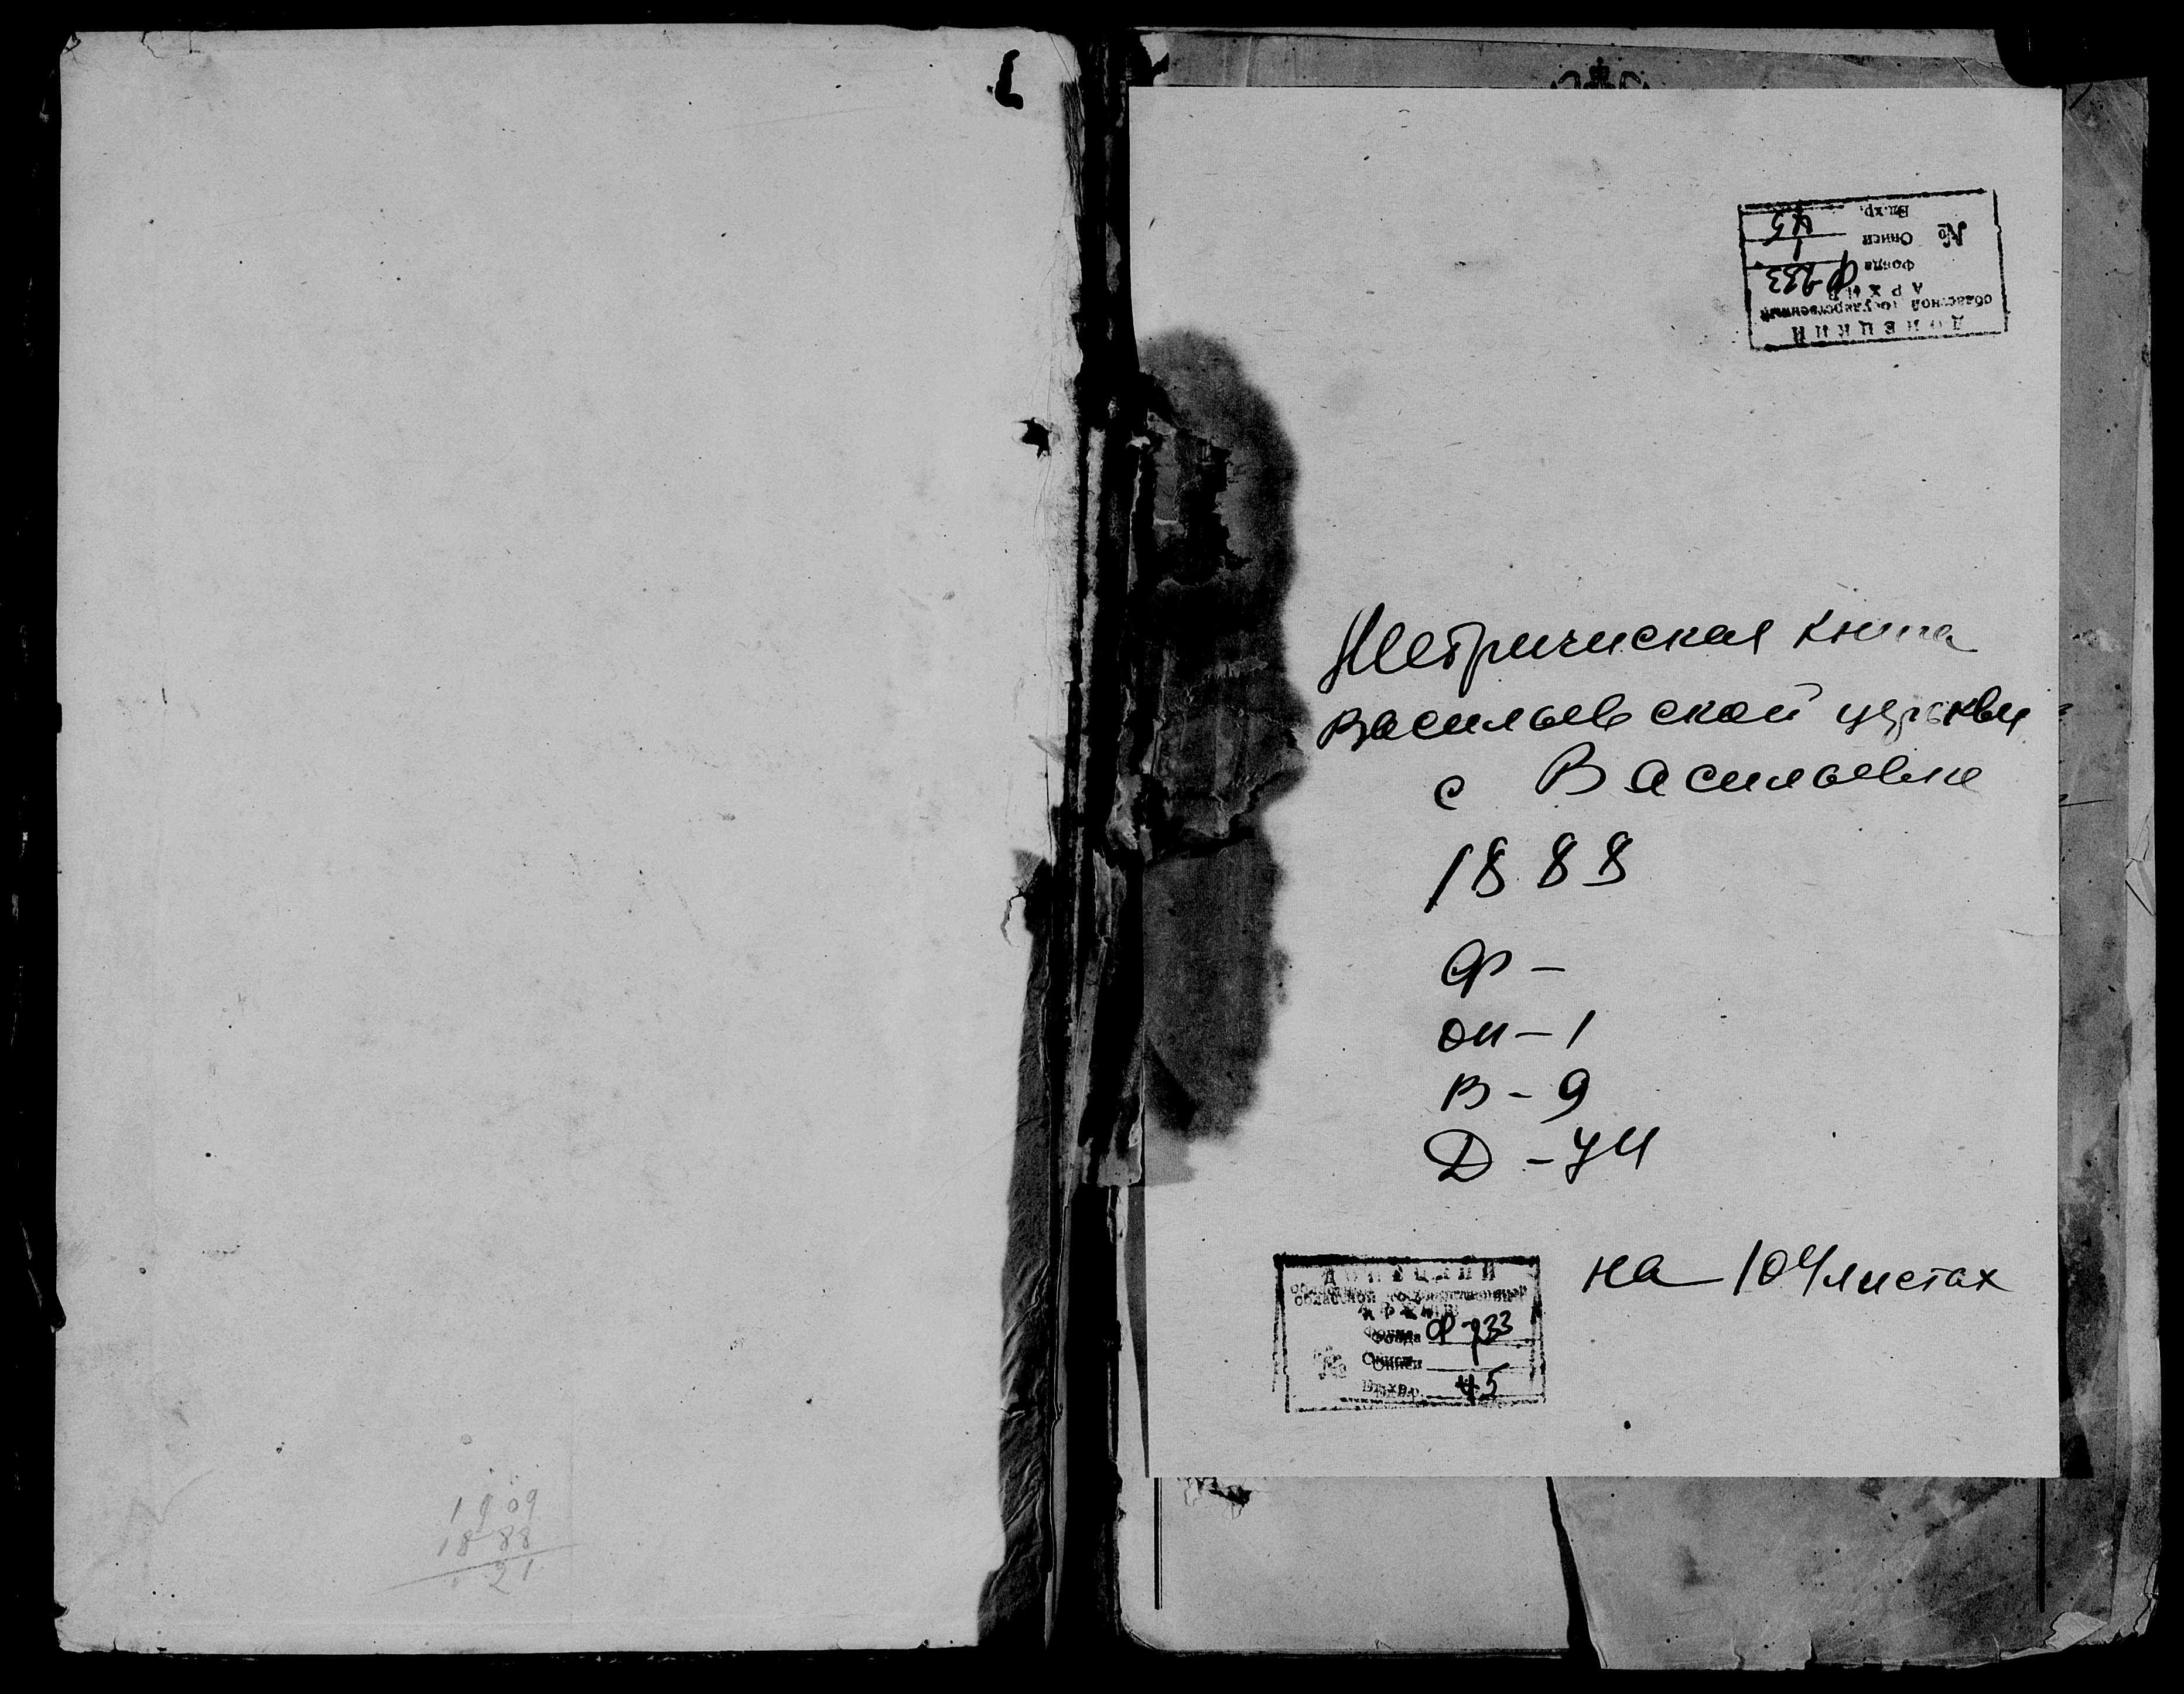 1909
1888
21
ДОНЕЦКИЙ
областной государственный
АРХИВ
Фонда Ф 233
№ Описи 1
Ед.хр. 45
Метрическая книга
Васильевской церькви
с Васильевке
1888
Ф –
оп – 1
В – 9
Д – 74
на 104 листах
ДОНЕЦКИЙ
областной государственный
АРХИВ
Фонда Ф 233
№ Описи 1
Ед.хр. 45